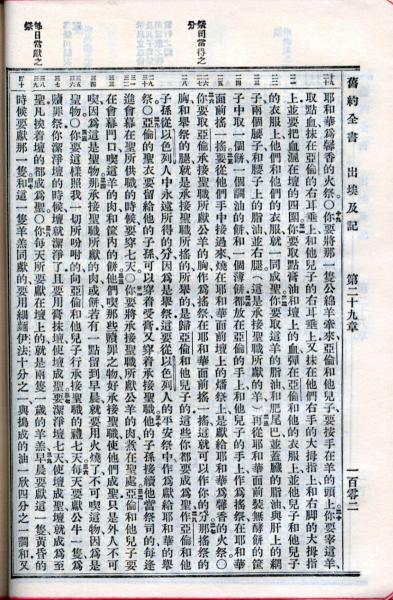 舊約全書　出埃及記　第二十九章　一百零二
耶和華爲馨香的火祭。你要將那一隻公綿羊牽來亞倫和他兒子要按手在羊的頭上你要宰這羊
取點血抹在亞倫的右耳垂上和他兒子的右耳垂上又抹在他們右手的大拇指上和右脚的大拇指
上並要把血灑在壇的四圍你要取點膏油和壇上的血彈在亞倫和他的衣服上並他兒子和他兒子
的衣服上他們和他們的衣服就一同成聖你要取這羊的脂油和肥尾巴並蓋臟的脂油與肝上的網
子兩個腰子和腰子上的脂油並右腿(這是承接聖職所獻的羊)再從耶和華面前裝無酵餅的筐
子中取一個餅一個調油的餅和一個薄餅都放在亞倫的手上和他兒子的手上作爲搖祭在耶和華
面前搖一搖要從他們手中接過來燒在耶和華面前壇上的燔祭上是獻給耶和華爲馨香的火祭。
你要取亞倫承接聖職所獻公羊的胸作爲搖祭在耶和華面前搖一搖這就可以作你的分那搖祭的
胸和舉祭的腿就是承接聖職所搖的所舉的是歸亞倫和他兒子的這些你都要成爲聖作亞倫和他
子孫從以色列人中永遠所得的分因爲是舉祭這要從以色列人的平安祭中作爲獻給耶和華的舉
祭。亞倫的聖衣要留給他的子孫可以穿着受膏又穿着承接聖職他的子孫接續他當祭司的每逢
進會幕在聖所供職的時候要穿七天。你要將承接聖職所獻公羊的肉煮在聖處亞倫和他兒子要
在會幕門口喫這羊的肉和筐內的餅他們喫那些贖罪之物好承接聖職使他們成聖只是外人不可
喫因爲這是聖物那承接聖職所獻的肉或餅若有一點留到早晨就要用火燒了不可喫這物因爲是
聖物。你要這樣照我一切所吩咐的向亞倫和他兒子行承接聖職的禮七天每天要獻公牛一隻爲
贖罪祭你潔淨壇的時候壇就潔淨了且要用膏抹壇使壇成聖要潔淨壇七天使壇成聖壇就成爲至
聖凡挨着壇的都成爲聖。你每天所要獻在壇上的就是兩隻一歲的羊羔早晨要獻這一隻黃昏的
時候要獻那一隻和這一隻羊羔同獻的要用細麵伊法十分之一與搗成的油一欣四分之一調和又
祭司當得之
每日當獻之
祭